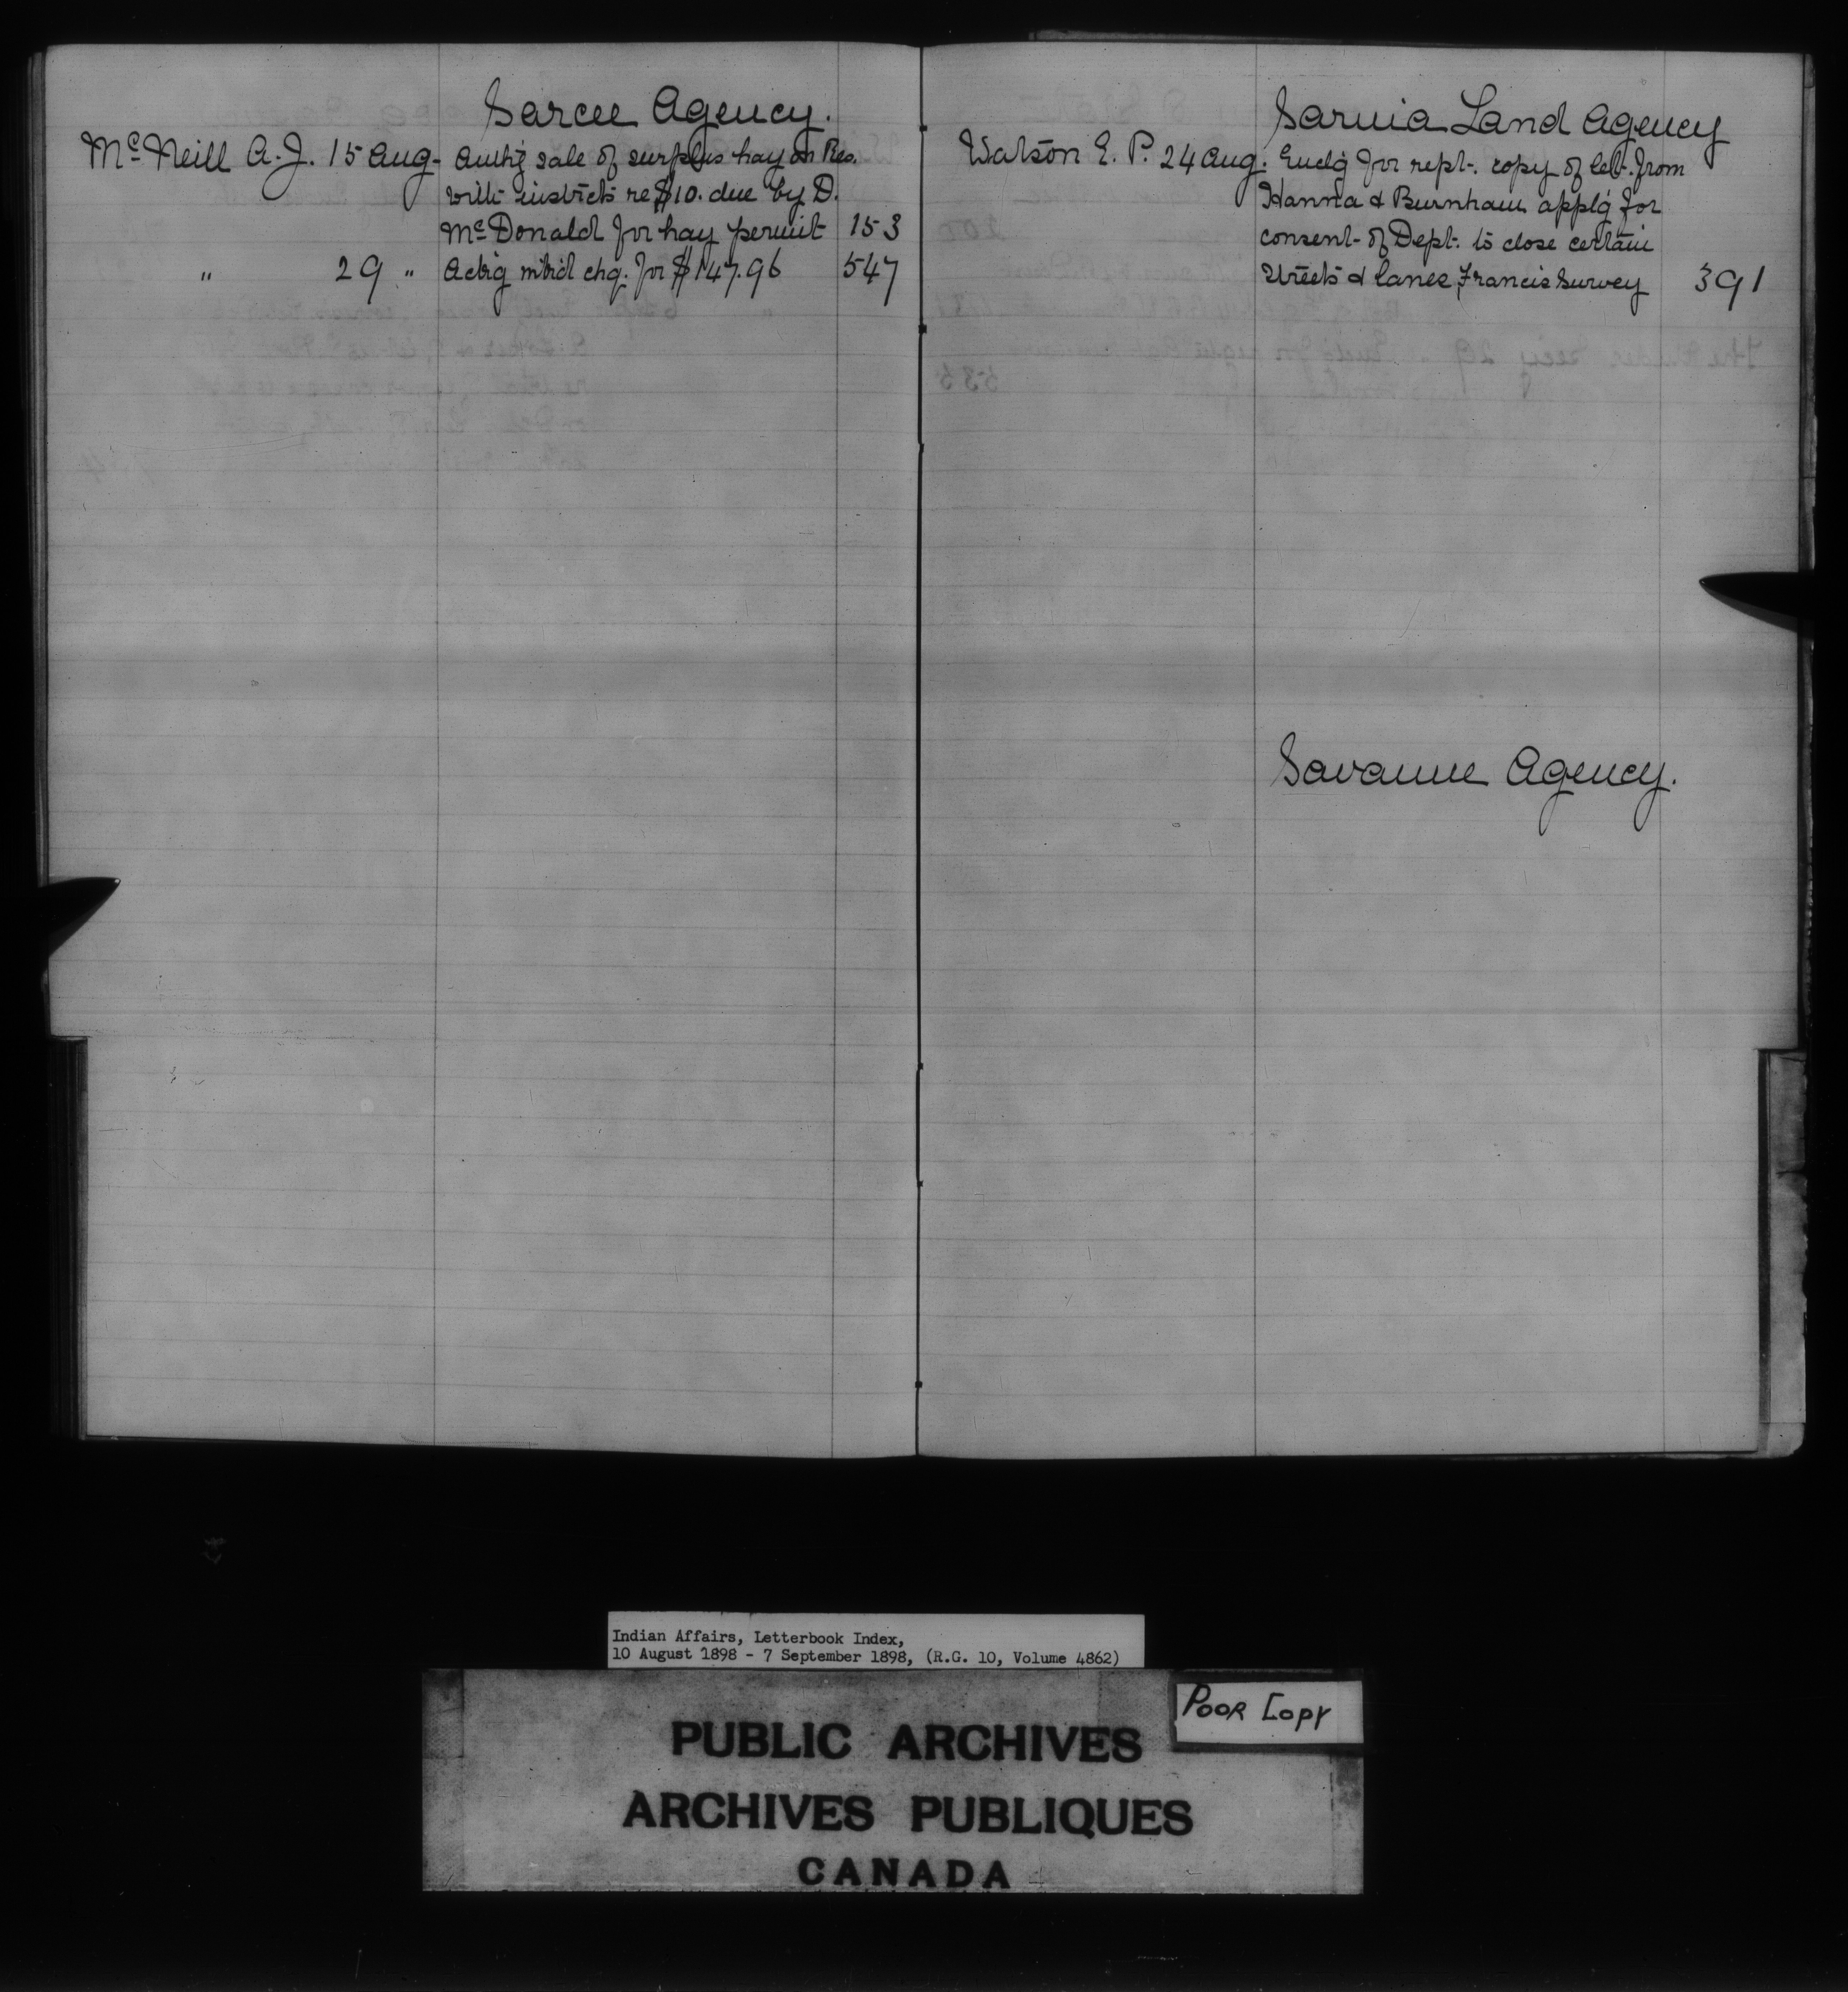 Sarcee Agency.
McNeill A. J. 15 Aug. Authg sale of surplus hay on Res.
with instrcts re $10. due by D.
McDonald for hay permit 153
" 29 " Ackg chq. for $147.96 547
Sarnia Land Agency
Watson E. P. 24 Aug. Enclg for rept. copy of let. from
Hanna & Burnham applg for
consent of Dept. to close certain
streets & lanes, Francis Survey 391
Savanne Agency.
Indian Affairs, Letterbook Index,
10 August 1898 - 7 September 1898, (R.G. 10, Volume 4862)
POOR COPY
PUBLIC ARCHIVES
ARCHIVES PUBLIQUES
CANADA